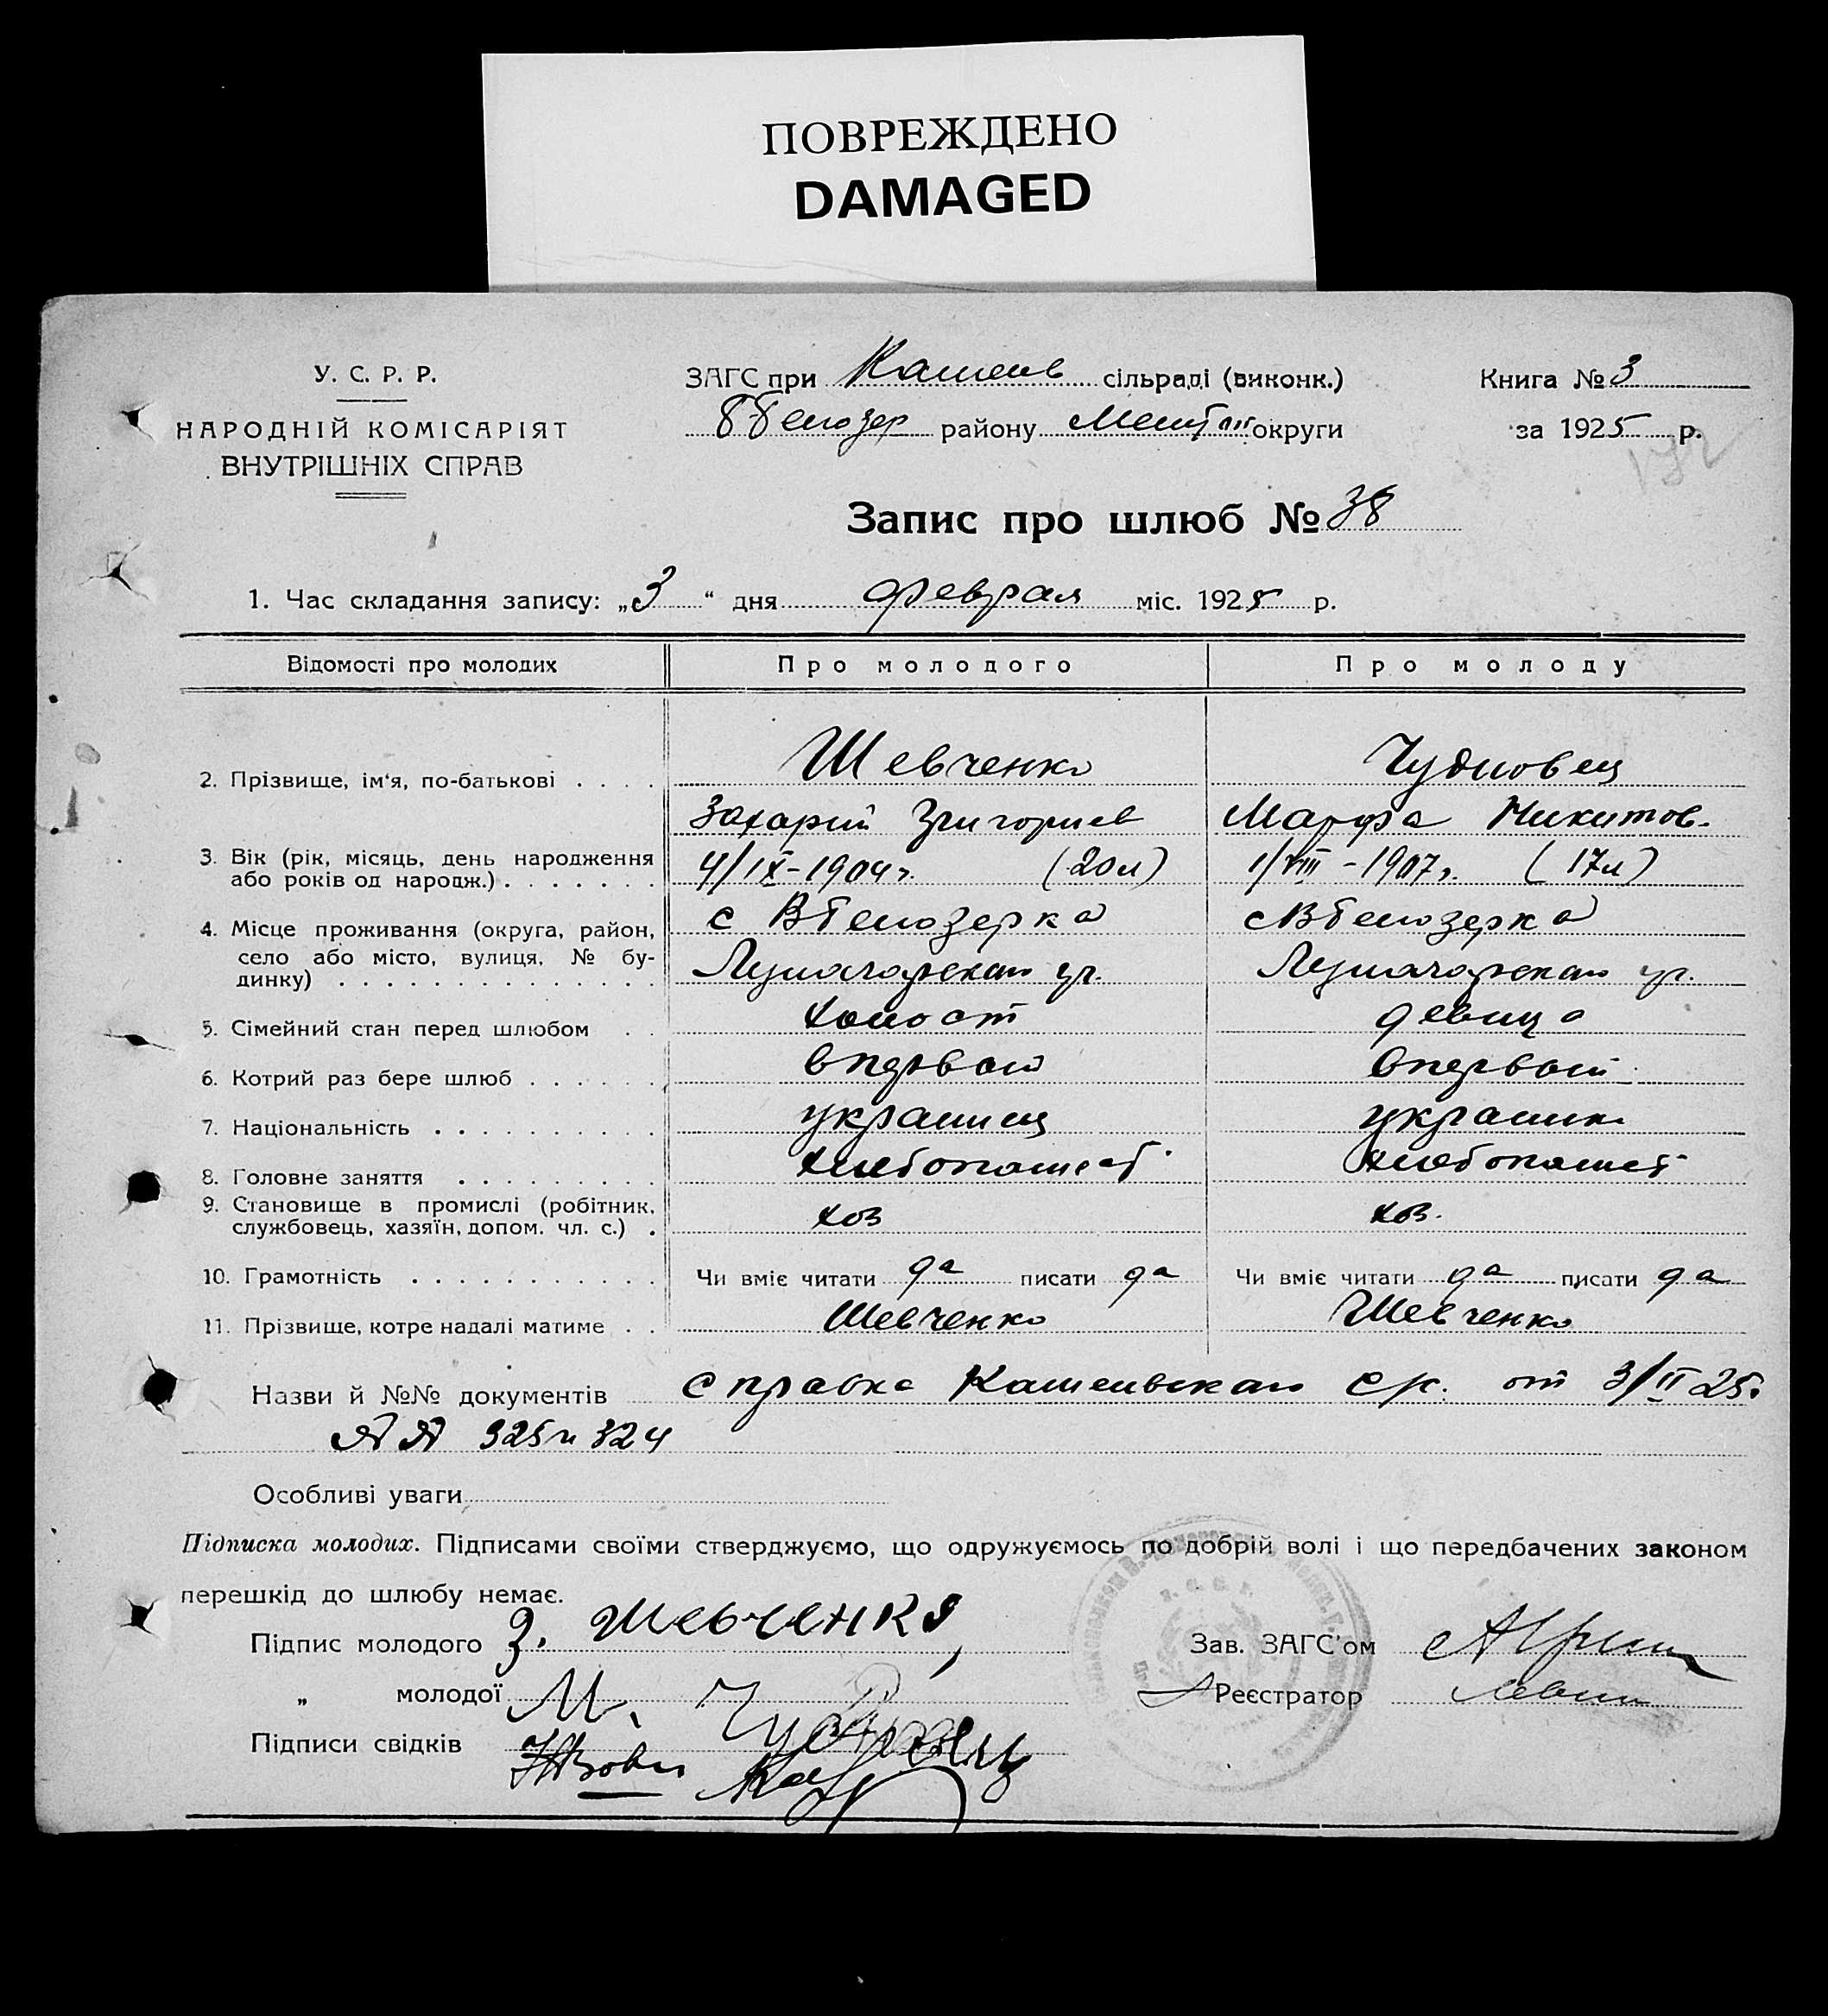 ПОВРЕЖДЕНО
DAMAGED
У. С. Р. Р.
НАРОДНІЙ КОМІСАРІЯТ
ВНУТРІШНІХ СПРАВ
ЗАГС при сільраді (виконк.)
ВБелозер району Мелітоп округи
Книга № 3
за 1925 р.
Запис про шлюб № 38
1. Час складання запису: „3“ дня февраля міс. 1925 р.
Відомості про молодих Про молодого Про молоду
2. Прізвище, ім‘я, по-батькові . . . . Шевченко Чудновец
Захарий Григориев Марфа Никитов.
3. Вік (рік, місяць, день народження
або років од народж.) . . . . . . . 4/IX-1904 г. (20 л) 1/VIII-1907 г. (17 л)
4. Місце проживання (округа, район,
село або місто, вулиця, № бу-
динку) . . . . . . . . . . . . . .
с ВБелозерка с ВБелозерка
Луначарская ул. Луначарская ул.
5. Сімейний стан перед шлюбом . . холост девица
6. Котрий раз бере шлюб . . . . . . впервой впервой
7. Національність . . . . . . . . . . украинец украинк
8. Головне заняття . . . . . . . . . хлебопашест хлебопашест
9. Становище в промислі (робітник,
службовець, хазяїн, допом. чл. с.) . хоз хоз.
10. Грамотність . . . . . . . . . . . Чи вміє читати да писати да Чи вміє читати да писати да
11. Прізвище, котре надалі матиме . . Шевченко Шевченко
Назви й №№ документів справка ср. от 3/II 25г
№№ 325 и 324
Особливі уваги
Підписка молодих. Підписами своїми стверджуємо, що одружуємось по добрій волі і що передбачених законом
перешкід до шлюбу немає.
Підпис молодого З. Шевченко Зав. ЗАГС'ом
„ молодої М. Чудновец Реєстратор
Підписи свідків